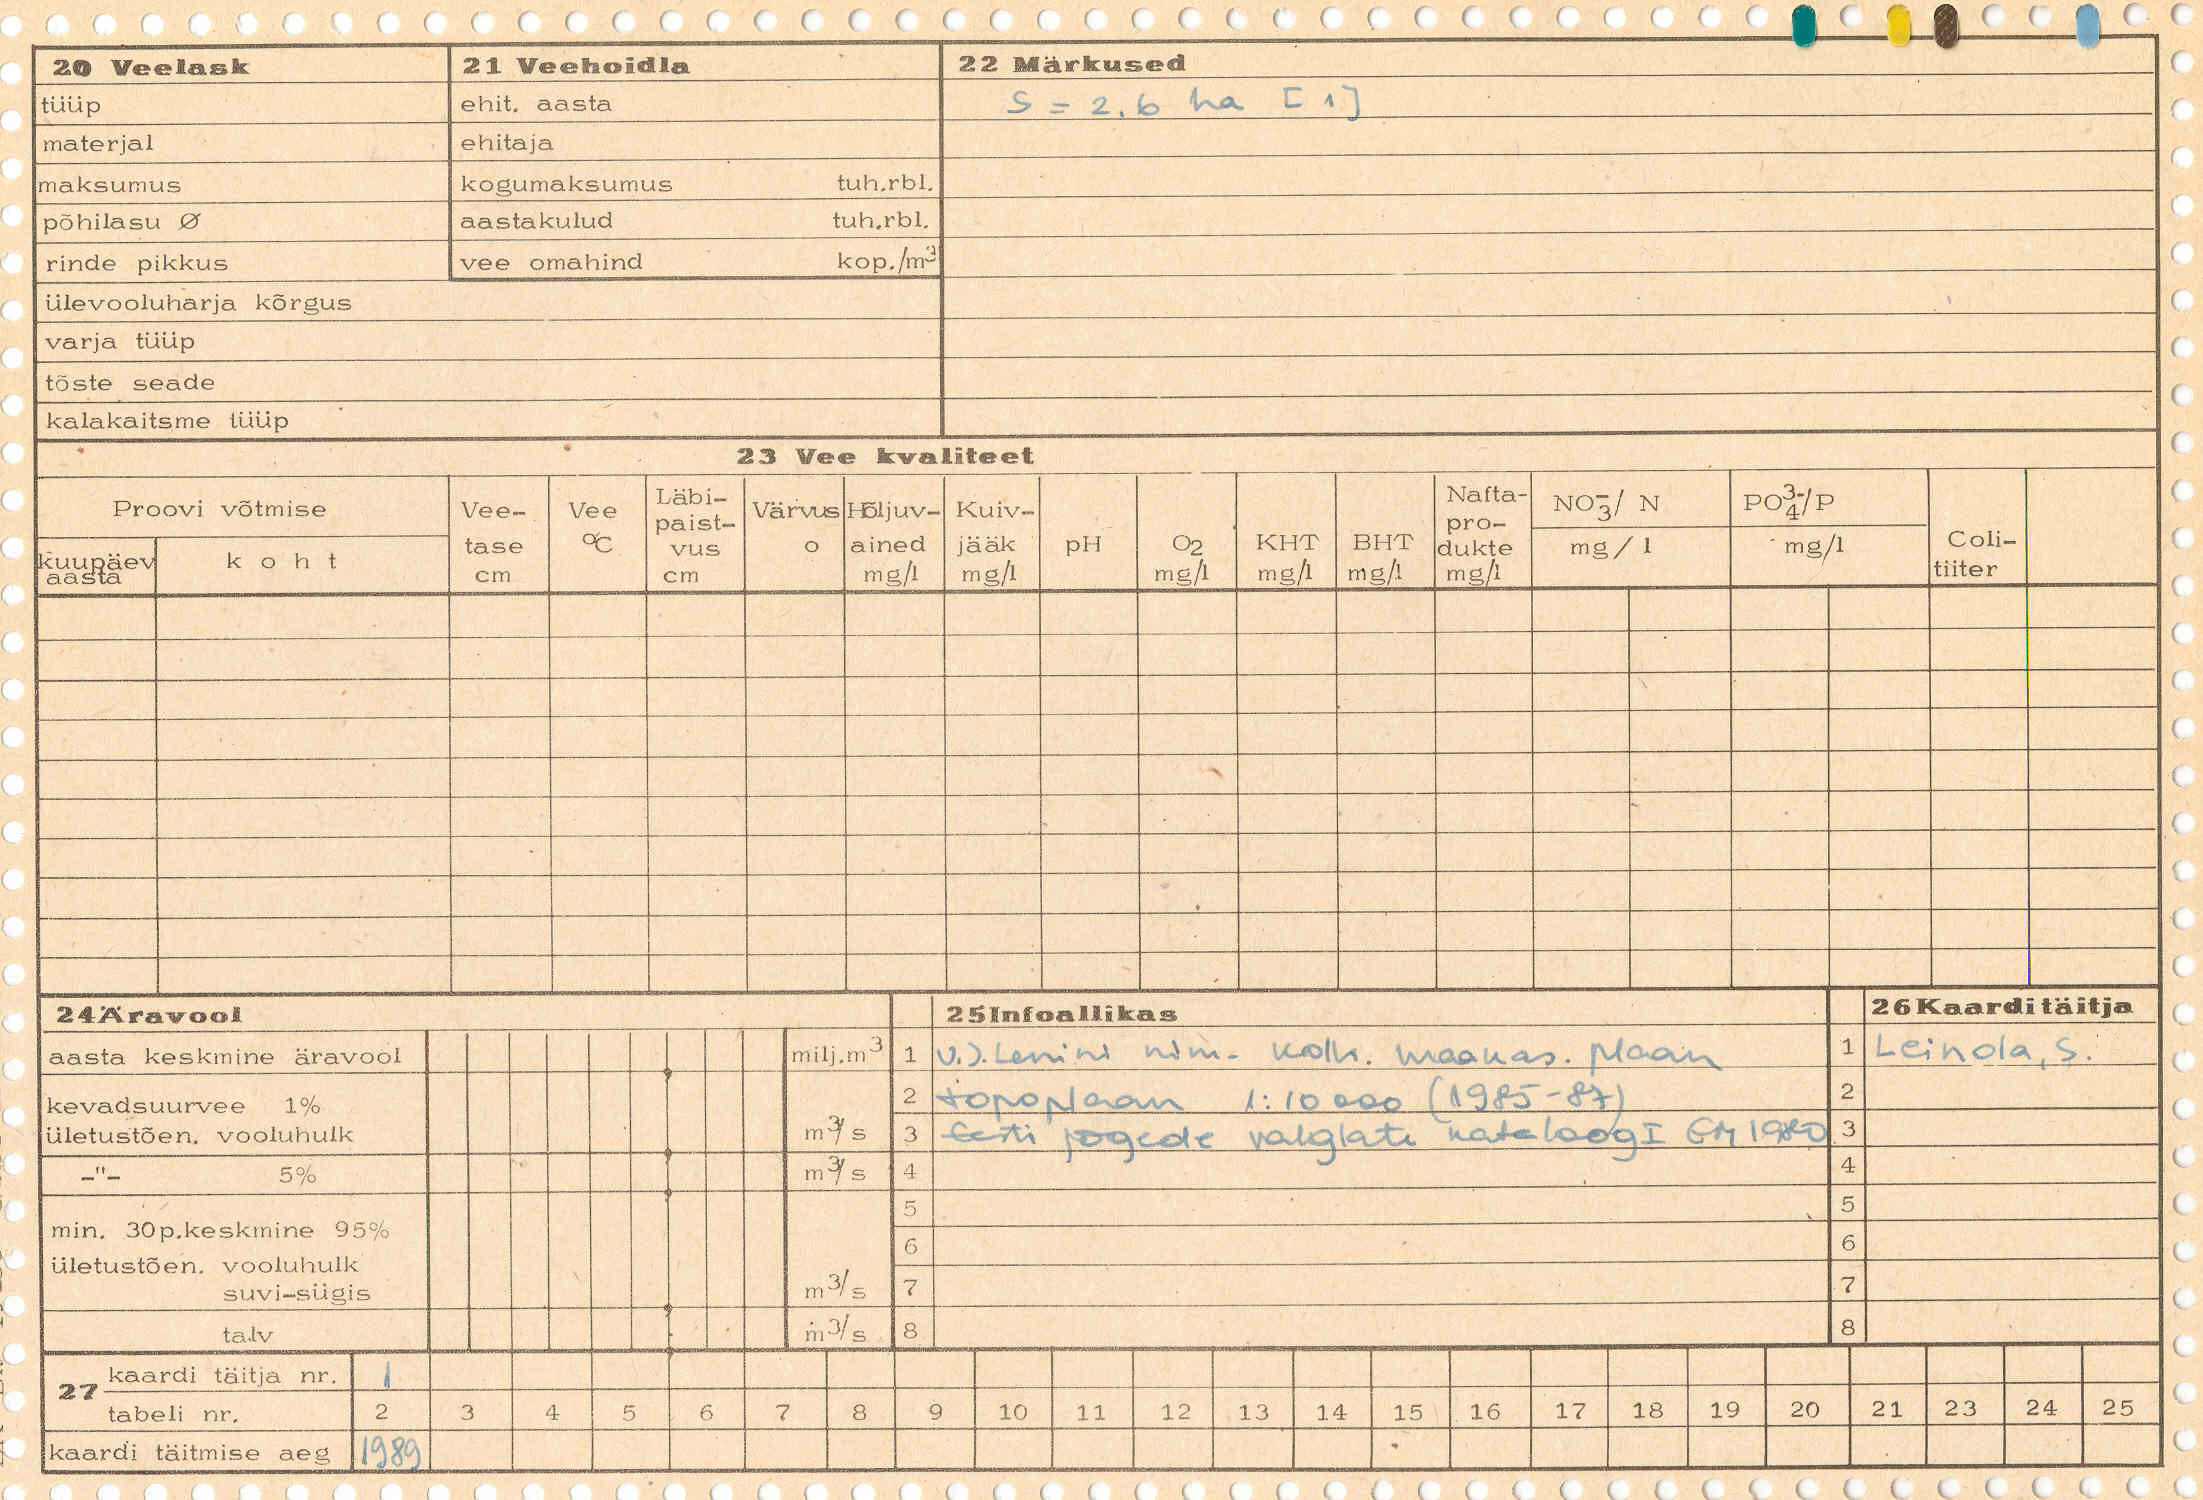 20 Veelask
tüüp
materjal
maksumus
põhilasu Ø
rinde pikkus
ülevooluharja kõrgus
varja tüüp
tõste seade
kalakaitsme tüüp
21 Veehoidla
ehit. aasta
ehitaja
kogumaksumus tuh.rbl.
aastakulud tuh.rbl.
vee omahind kop./m³
22 Märkused
S = 2.6 ha [1]
23 Vee kvaliteet
Proovi võtmise
kuupäev aasta
koht
Vee-tase cm
Vee °C
Läbi-paist-vus cm
Värvus o
Hõljuv-ained mg/l
Kuiv-jääk mg/l
pH
O₂ mg/l
KHT mg/l
BHT mg/l
Nafta-pro-dukte mg/l
NO₃⁻/ N mg/l
PO₄³⁻/P mg/l
Coli-tiiter
24 Äravool
aasta keskmine äravool milj.m³
kevadsuurvee 1%
ületustõen. vooluhulk m³/s
–"– 5% m³/s
min. 30p.keskmine 95%
ületustõen. vooluhulk
suvi-sügis m³/s
talv m³/s
25 Infoallikas
1 V.I. Lenini nim. kolh. maakas. plaan
2 topoplaan 1:10 000 (1985-87)
3 Eesti jõgede valglate kataloog I EM 1980
4
5
6
7
8
26 Kaarditäitja
1 Leinola, S.
2
3
4
5
6
7
8
27
kaardi täitja nr. 1
tabeli nr. 2 3 4 5 6 7 8 9 10 11 12 13 14 15 16 17 18 19 20 21 23 24 25
kaardi täitmise aeg 1989